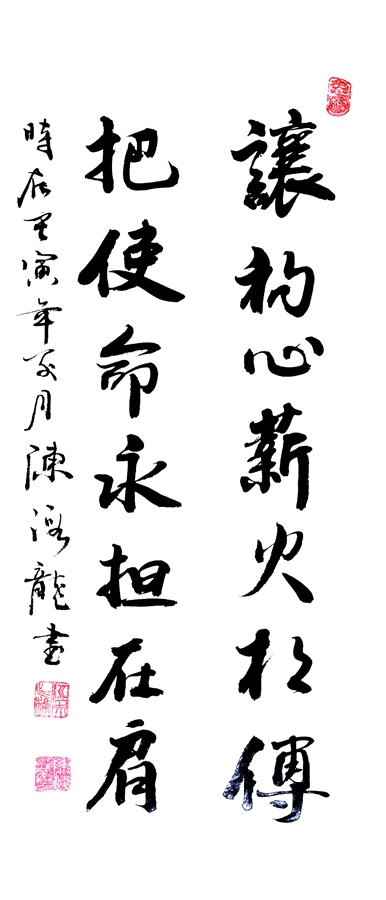 讓初心薪火相傳
把使命永担在肩
時在壬寅年月陳龍書